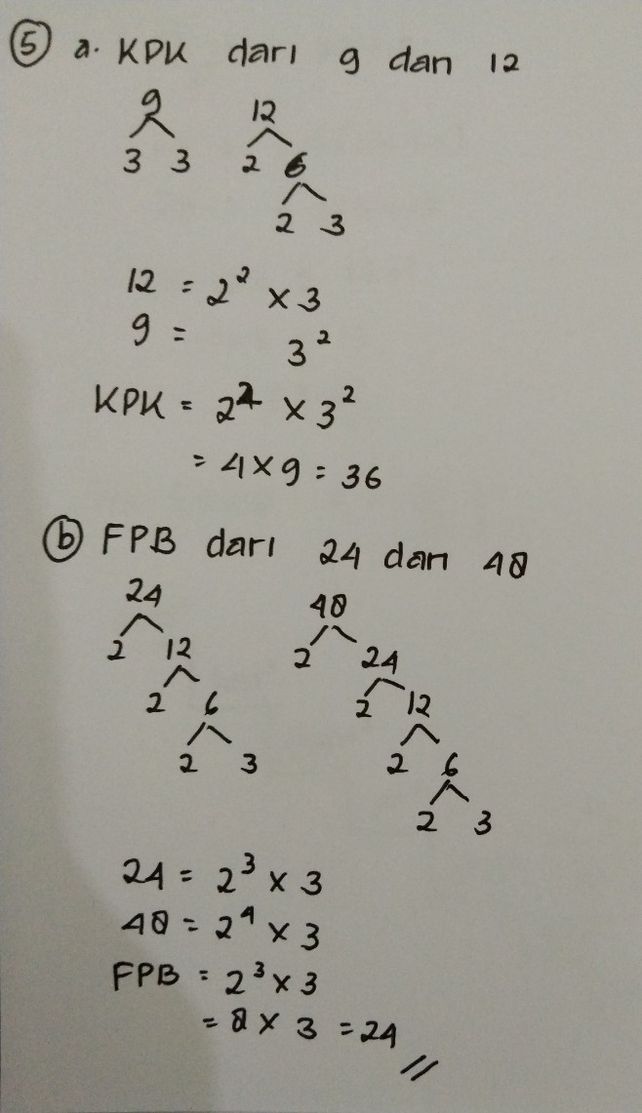 5 a. KPK dari 9 dan 12
9 12
3 3 2 6
2 3
12 = 2² × 3
9 = 3²
KPK = 2² × 3²
= 4 × 9 = 36
b FPB dari 24 dan 48
24 48
2 12 2 24
2 6 2 12
2 3 2 6
2 3
24 = 2³ × 3
48 = 2⁴ × 3
FPB = 2³ × 3
= 8 × 3 = 24 //